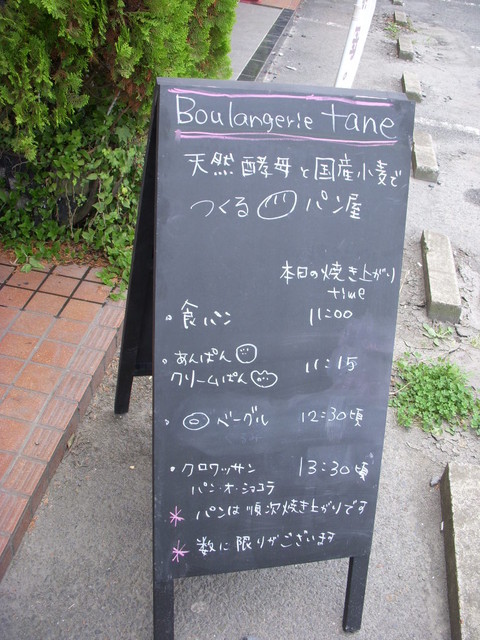 Boulangerie tane
天然酵母と国産小麦で
つくる パン屋
本日の焼き上がり
time
・食パン 11:00
・あんぱん
クリームぱん 11:15
・ベーグル 12:30頃
・クロワッサン 13:30頃
パン・オ・ショコラ
* パンは順次焼き上がりです
* 数に限りがございます